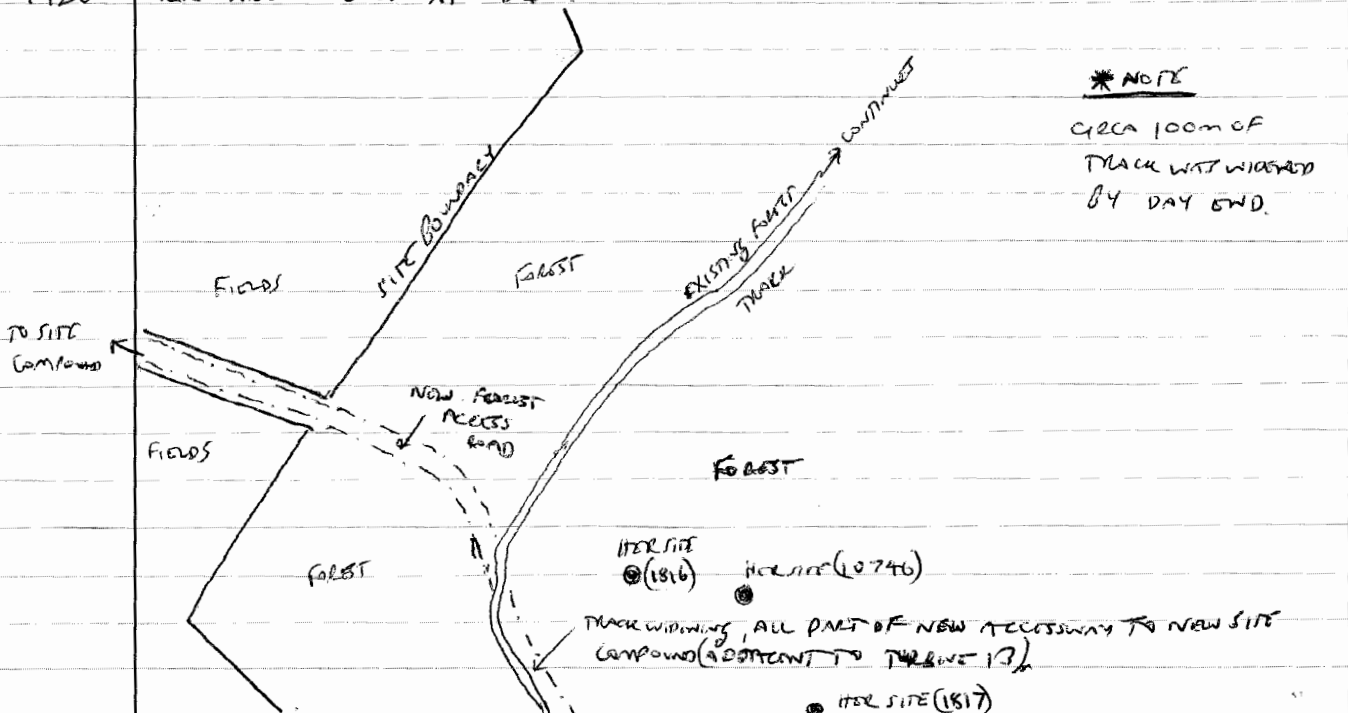 * NOTE
CIRCA 100m OF
TRACK WAS WIDENED
BY DAY END.
CONTINUES
SITE BOUNDARY
EXISTING FOREST
TRACK
FIELDS
FOREST
TO SITE
COMPOUND
NEW FOREST
ACCESS
ROAD
FIELDS
FOREST
FOREST
HER SITE
(1816)
HER SITE (10746)
TRACK WIDENING, ALL PART OF NEW ACCESSWAY TO NEW SITE
COMPOUND (ADJACENT TO TURBINE 13)
HER SITE (1817)